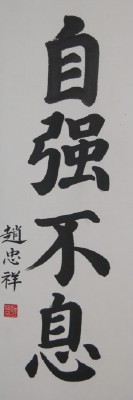 自强不息
趙忠祥